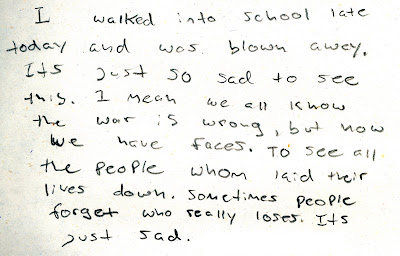 I walked into school late
today and was blown away.
Its just so sad to see
this. I mean we all know
the war is wrong, but now
we have faces. To see all
the people whom laid their
lives down. Sometimes people
forget who really loses. Its
just sad.